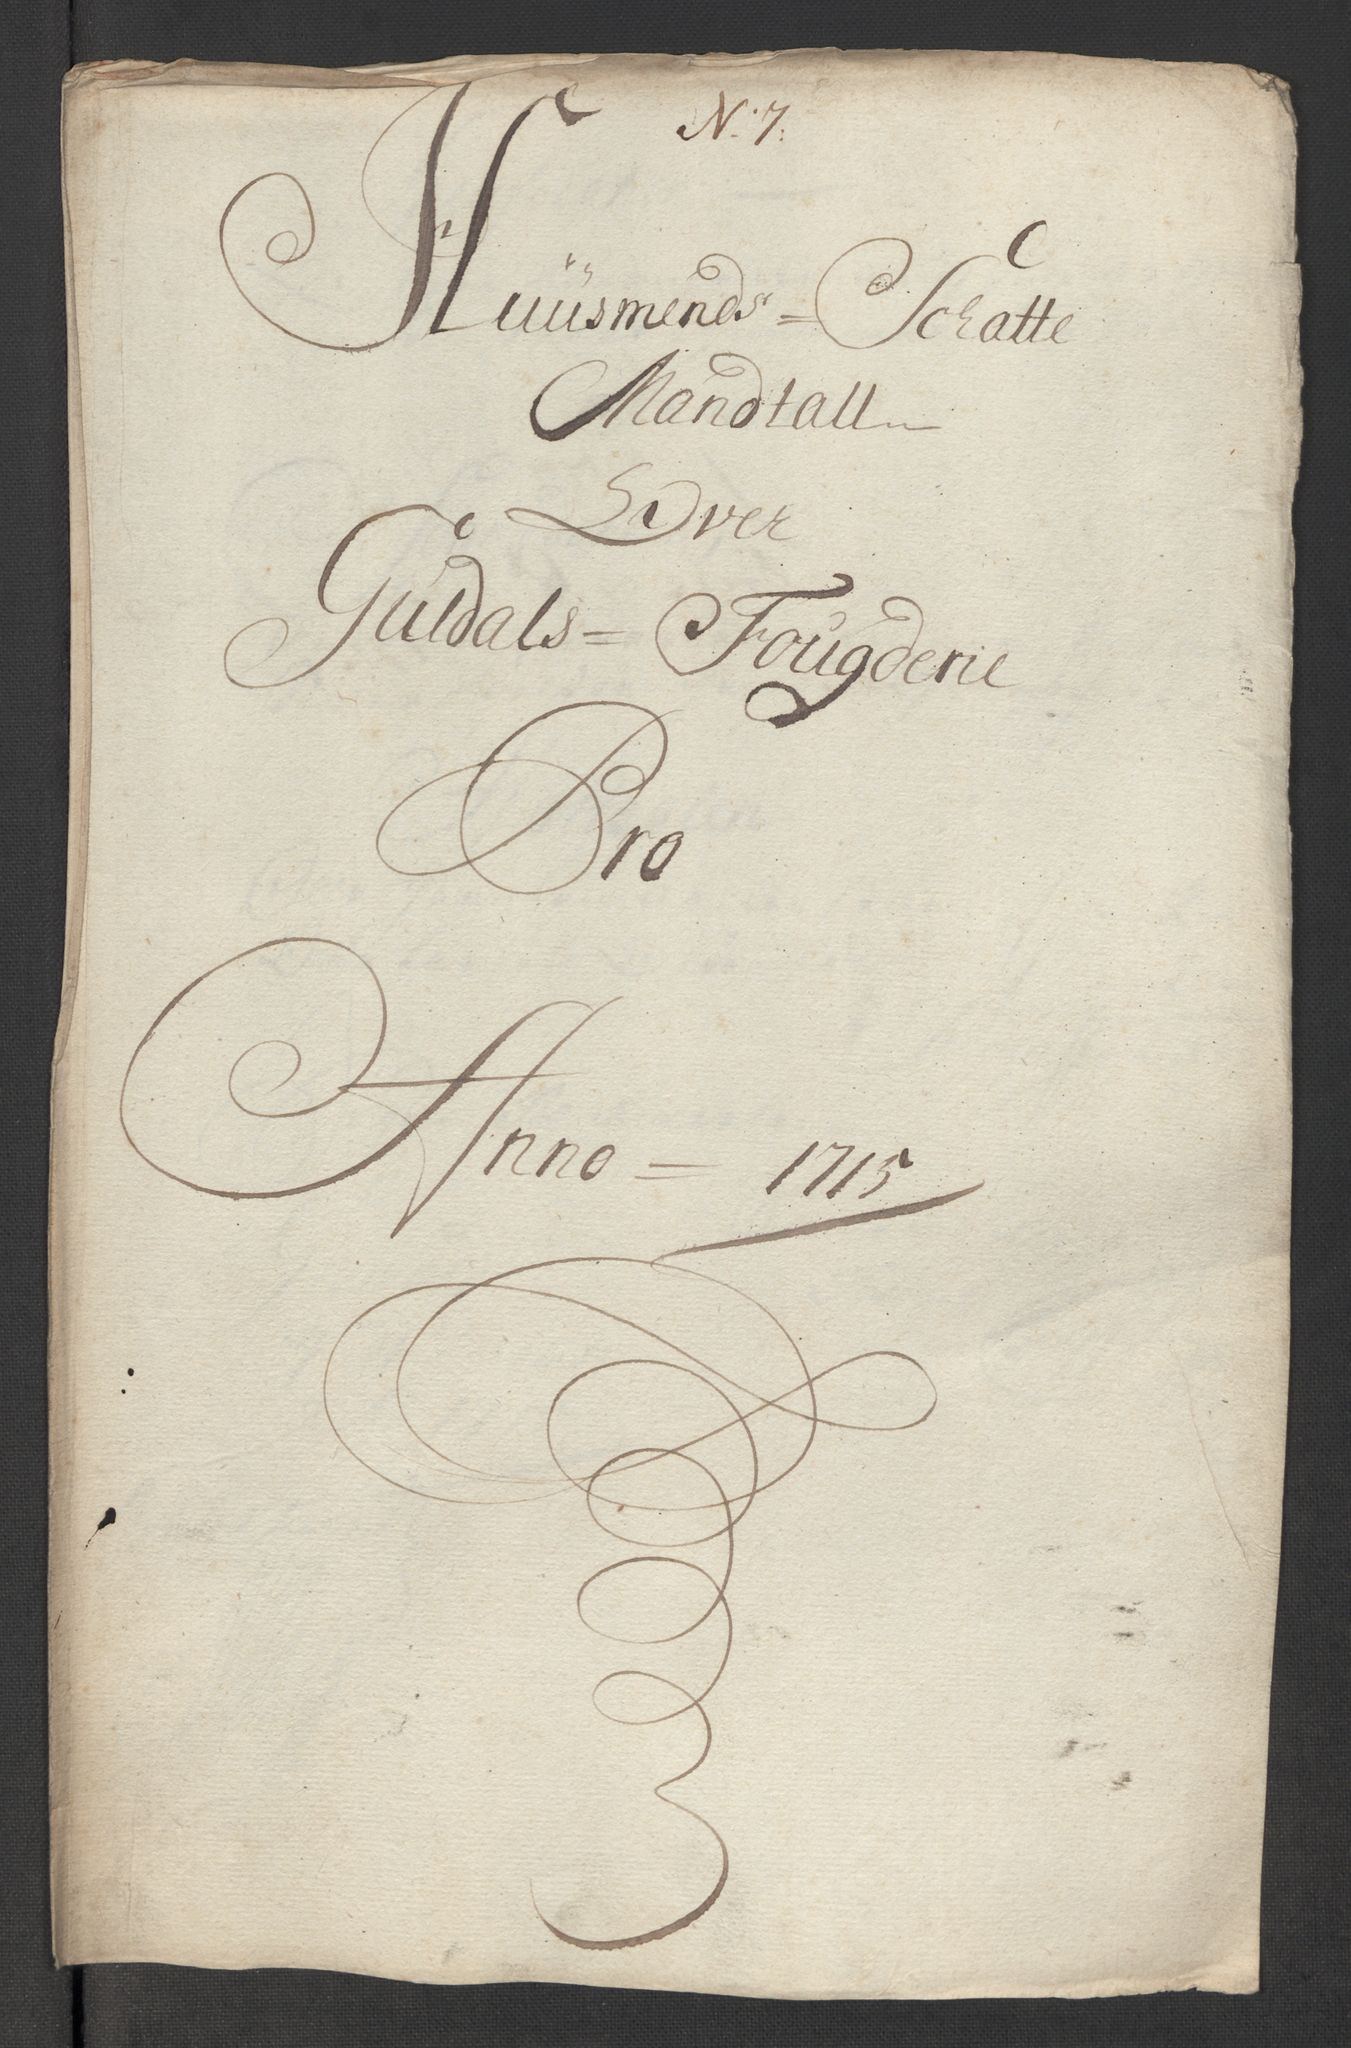 N. 7.
Huusmends= Schatte
Mandtall
Over
Guldals= Fougderie
Pro
Anno = 1715